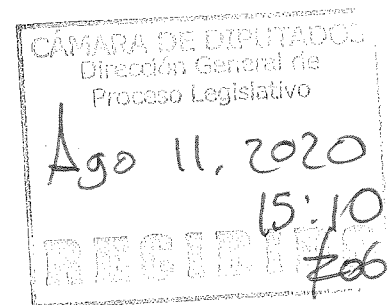 CÁMARA DE DIPUTADOS
Dirección General de
Proceso Legislativo
Ago 11, 2020
15:10